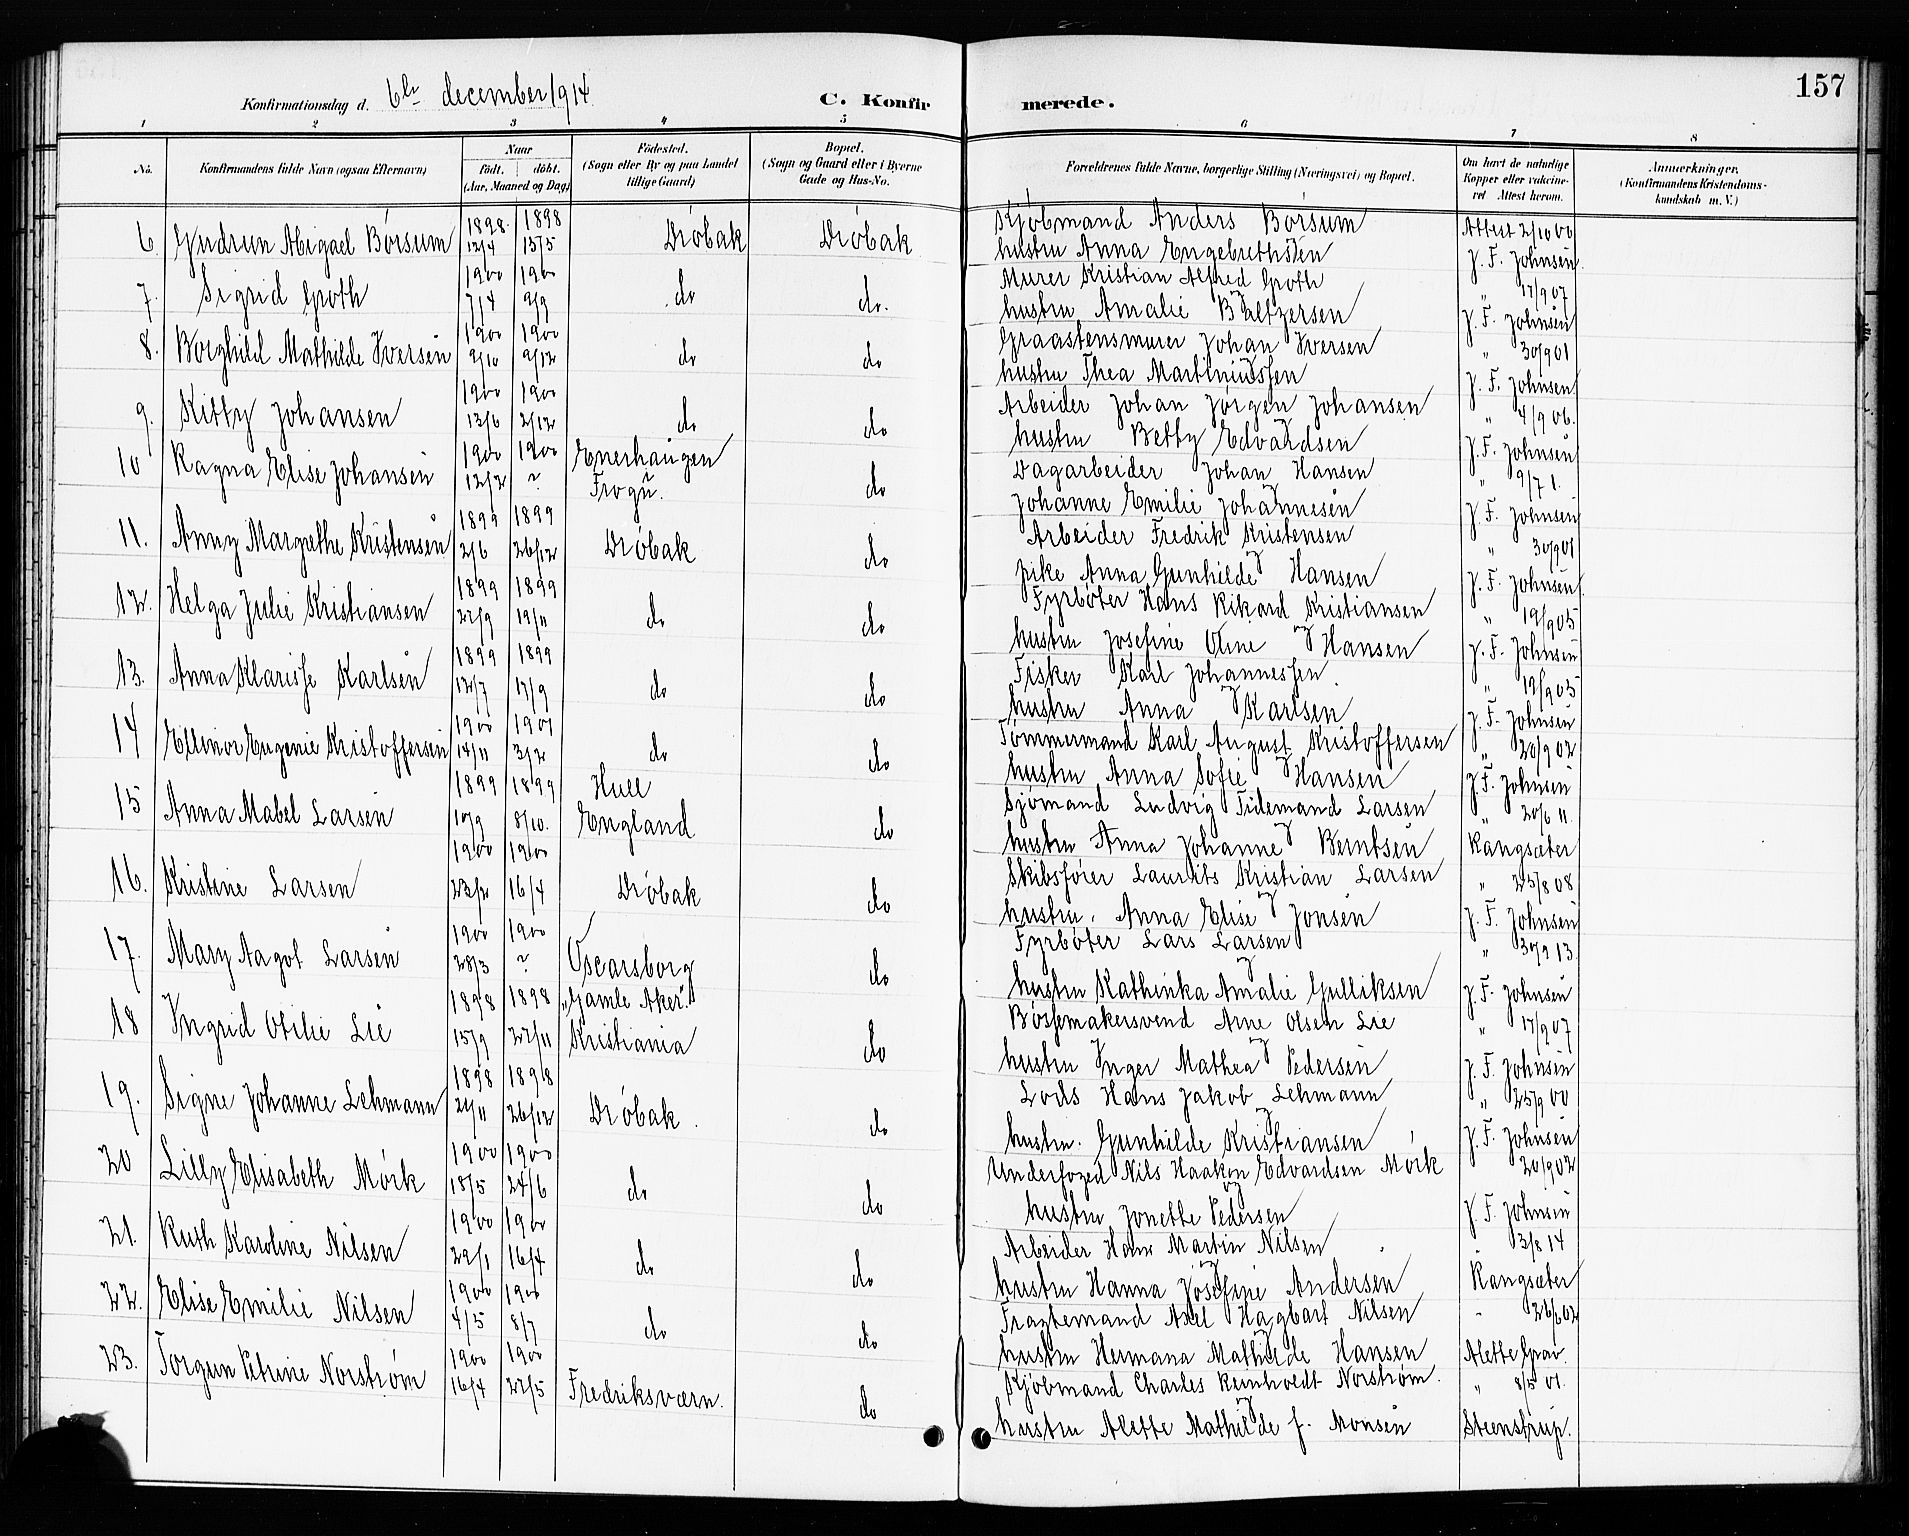 157
Konfirmationsdag d. 6te december 1914
C. Konfirmerede.
1 2 3 4 5 6 7 8
No.
Konfirmandens fulde Navn (ogsaa Efternavn)
Naar
födt. döbt.
(Aar, Maaned og Dag)
Födested.
(Sogn eller By og paa Landet
tillige Gaard)
Bopæl.
(Sogn og Gaard eller i Byerne
Gade og Hus-No.
Forældrenes fulde Navne, borgerlige Stilling (Næringsvei) og Bopæl.
Om havt de naturlige
Kopper eller vakcine-
ret Attest herom.
Anmerkninger.
(Konfirmandens Kristendoms-
kundskab m. V.)
6. Gudrun Abigael Börsum 1898 13/4 1898 15/5 Dröbak Dröbak
Kjöbmand Anders Börsum
hustru Anna Engebrethsten
Attest 2/10 00
J. F. Johnsen
7. Sigrid Groth 1900 7/4 1900 9/9 do do.
Murer Kristian Alfred Groth
hustru Amalie Baltzersen
" 17/9 07
J. F. Johnsen
8. Borghild Mathilde Iversen 1900 9/10 1900 9/12 do do
Graastensmurer Johan Iversen
hustru Thea Martiniussen
" 30/9 01
J. F. Johnsen
9. Kitty Johansen 1900 13/6 1900 2/12 do do
Arbeider Johan Jörgen Johansen
hustru Betty Edvardsen
" 4/9 06.
J. F. Johnsen
10 Ragna Elise Johansen 1900 12/2 1900 ? Enerhaugen Frogn. do
Dagarbeider Johan Hansen
Johanne Emilie Johannesen
" 9/7 1.
J. F. Johnsen
11. Anny Margrethe Kristensen 1899 2/6 1899 26/12 Dröbak do
Arbeider Fredrik Kristensen
pike Anna Gunhilde Hansen
" 30/9 01
J. F. Johnsen
12. Helga Julie Kristiansen 1899 22/9 1899 19/11 do do
Fyrböter Hans Rikard Kristiansen
hustru Josefine Oline Hansen
" 19/9 05
J. F. Johnsen
13. Anna Klarisse Karlsen 1899 12/7 1899 17/9 do do
Fisker Karl Johannessen
hustru Anna Karlsen
" 19/9 05
J. F. Johnsen
14 Ellinor Eugenie Kristoffersen 1900 14/11 1901 3/2 do do
Tömmermand Karl August Kristoffersen
hustru Anna Sofie Hansen
" 20/9 02
J. F. Johnsen
15 Anna Mabel Larsen 1899 10/9 1899 8/10. Hull England do
Sjömand Ludvig Tidemand Larsen
hustru Anna Johanne Berntsen
" 20/6 11.
Rangsæter
16. Kristine Larsen 1900 23/2 1900 16/4 Dröbak do
Skibsförer Laurits Kristian Larsen
hustru. Anna Elise Jonsen
" 25/8 08
J. F. Johnsen
17. Mary Aagot Larsen 1900 28/3 1900 ? Oscarsborg do
Fyrböter Lars Larsen
hustru Kathinka Amalie Gulliksen
" 30/9 13
J. F. Johnsen
18 Ingrid Otilie Lie 1898 15/9 1898 27/11 "Gamle Aker" Kristiania do
Bössemakersvend Arne Olsen Lie
hustru Inger Mathea Pedersen
" 17/9 07
J. F. Johnsen
19. Signe Johanne Lehmann 1898 21/11 1898 26/12 Dröbak. do
Lods Hans Jakob Lehmann
hustru. Gunhilde Kristiansen
" 25/9 00
J. F. Johnsen
20 Lilly Elisabeth Mörk 1900 18/5 1900 24/6 do do
Underfoged Nils Haakon Edvardsen Mörk
hustru Jonette Pedersen
20/9 02
J. F. Johnsen
21. Ruth Karoline Nilsen 1900 29/1 1900 16/4 do do
Arbeider Hans Martin Nilsen
hustru Hanna Josefine Andersen
3/8 14
Rangsæter
22. Elise Emilie Nilsen 1900 4/5 1900 8/7 do do
Fragtemand Axel Hagbart Nilsen
hustru Hermana Mathilde Hansen
" 26/6 02
Alette Grav.
23. Torgun Petrine Norström 1900 16/4 1900 27/5 Fredriksværn. do
Kjöbmand Charles Reinholdt Norström.
hustru Alette Mathilde f. Monsen
" 8/5 01.
Steenstrup.